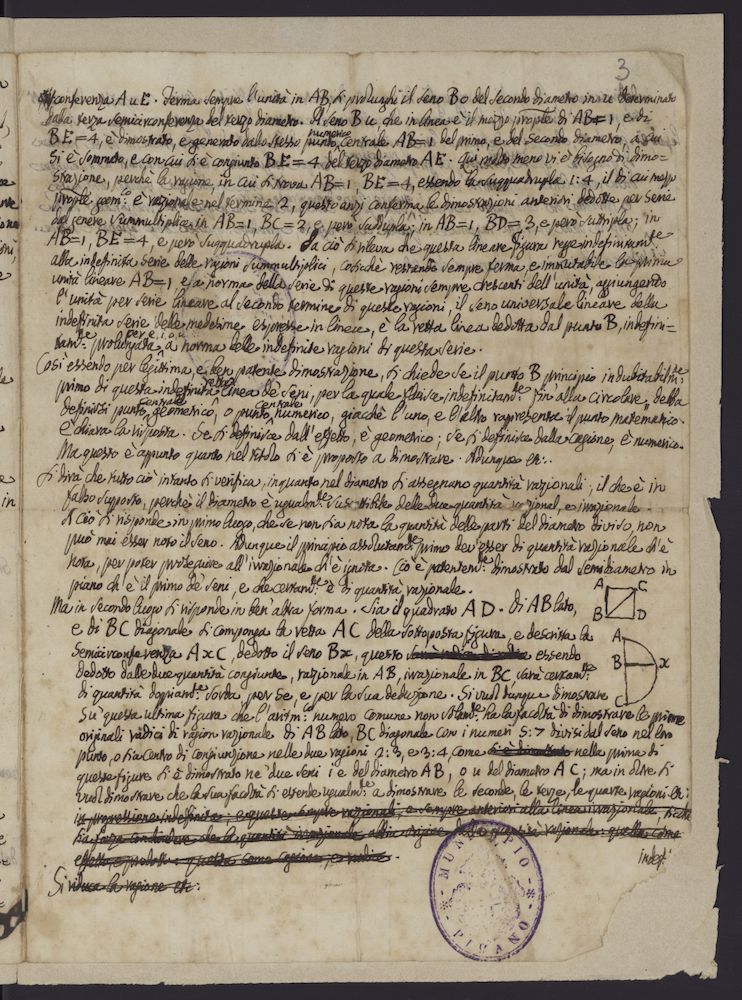 3
conferenza A u E. Ferma sempre l'unità in AB, si prolunghi il seno Bo del secondo diametro in u determinato
dalla terza semicirconferenza del terzo diametro. Il seno Bu che in linea è il mezzo prople di AB=1, e di
BE=4, è dimostrato, e generato dallo stesso punto numerico centrale AB=1 del primo, e del secondo diametro, a cui
si è sommato, e con cui si è congiunto BE=4 del terzo diametro AE. Qui molto meno vi è bisogno di dimo=
strazione, perchè la ragione, in cui si trova AB=1, BE=4, essendo la suqquadrupla 1:4, il di cui mezzo
prople geom:co è razionale nel termine 2, quest'anzi conferma le dimostrazioni anteriori dedotte per serie
dal genere summultiplice in AB=1, BC=2, e però suddupla; in AB=1, BD=3, e però suttripla; in
AB=1, BE=4, e però suqquadrupla. Da ciò si rileva che questa lineare figura regge indefinitam:te
alla indefinita serie delle ragioni summultiplici, cosichè restando sempre ferma, e immutabile la prima
unità lineare AB=1, e a norma della serie di queste ragioni sempre crescenti dell'unità, aggiungendo
l'unità per serie lineare al secondo termine di queste ragioni, il seno universale lineare della
indefinita serie delle medesime espresse in linea, è la retta linea dedotta dal punto B, indefini=
tam:te prolungata per e, i, o, u a norma delle indefinite ragioni di questa serie.
Così essendo per legittima, e ben patente dimostrazione, si chiede se il punto B principio indubitabilm:te
primo di questa indefinita retta linea de' seni, per la quale si alza indefinitam:te fin alla circolare, debba
definirsi punto centrale geometrico, o punto centrale numerico, giacchè l'uno, e l'altro rapresenta il punto matematico.
È chiara la risposta. Se si definisce dall'effetto, è geometrico; se si definisce dalla cagione, è numerico.
Ma questo è appunto quanto nel titolo si è proposto a dimostrare. Adunque etc:.
Si dirà che tutto ciò intanto si verifica, inquanto nel diametro si assegnano quantità razionali; il che è in
falso supposto, perchè il diametro è ugualm:te suscettibile delle due quantità razional, e irrazionale.
A ciò si risponde in primo luogo, che se non sia nota la quantità delle parti del diametro diviso, non
può mai esser noto il seno. Adunque il principio assolutam:te primo dev'esser di quantità razionale ch'è
nota, per poter proseguire all'irrazionale ch'è ignota. Ciò è patentem:te dimostrato dal semidiametro in
piano ch'è il primo de' seni, e che certam:te è di quantità razionale.
Ma in secondo luogo si risponde in ben'altra forma. Sia il quadrato AD. Di AB lato,
e di BC diagonale si componga la retta AC della sottoposta figura, e descritta la
semicirconferenza AxC, dedotto il seno Bx, questo essendo
dedotto dalle due quantità congiunte, razionale in AB, irrazionale in BC, sarà certam:te
di quantità doppiam:te sorda per se, e per la sua deduzione. Si vuol dunque dimostrare
su questa ultima figura che l'aritm:co numero comune non solam:te ha la facoltà di dimostrare le prime
originali radici di ragion razionale di AB lato, BC diagonale con i numeri 5:7 divisi dal seno nel loro
punto, o sia centro di congiunzione nelle due ragioni 2:3, e 3:4, come nella prima di
queste figure si è dimostrato ne' due seni i e del diametro AB, o u del diametro AC; ma in oltre si
vuol dimostrare che la sua facoltà si estende ugualm:te a dimostrare le seconde, le terze, le quarte ragioni etc:
in progressione indefinita; e queste sempre razionali, e sempre anteriori alla linea irrazionale,
effetto, e prodotto: questa come cagione, e radice.
Si riduca la ragione etc:
indef:
A C
B D
A
B x
C
MUNICIPIO
PIRANO